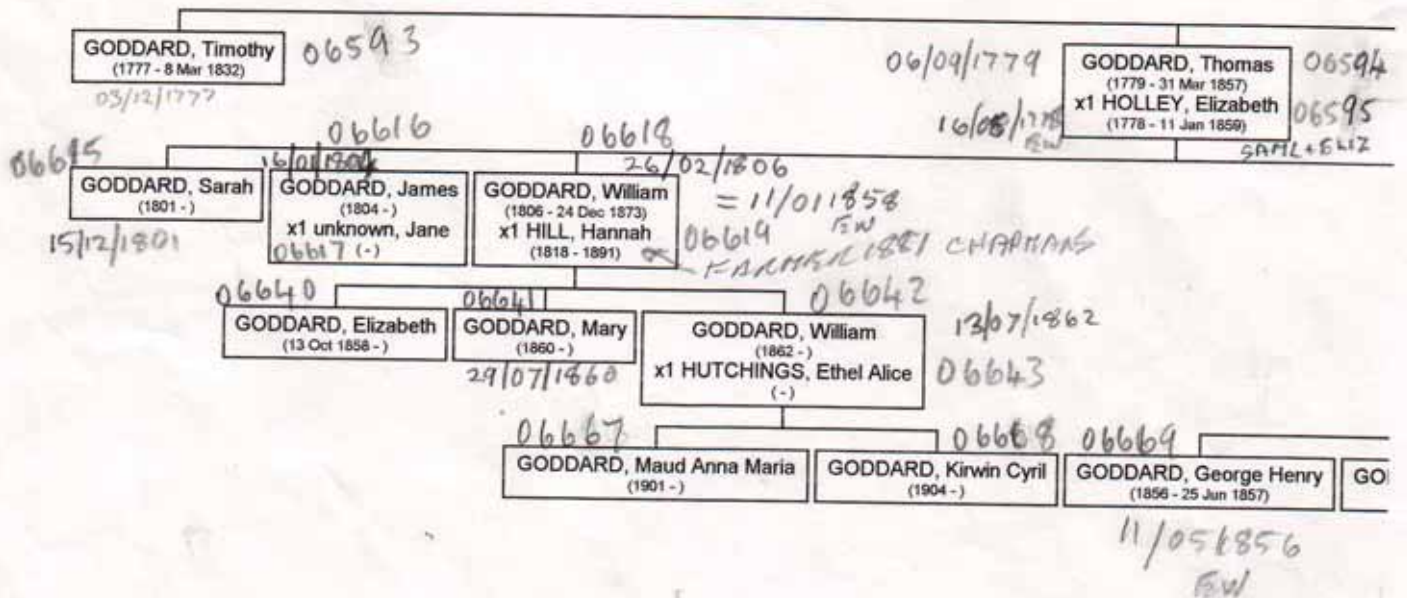 GODDARD, Timothy
(1777 - 8 Mar 1832)
06593
03/12/1777
06/09/1779
GODDARD, Thomas
(1779 - 31 Mar 1857)
x1 HOLLEY, Elizabeth
(1778 - 11 Jan 1859)
06594
06595
16/08/1778
EW
SAML + ELIZ
06615
GODDARD, Sarah
(1801 - )
15/12/1801
06616
16/01/1804
GODDARD, James
(1804 - )
x1 unknown, Jane
06617 (-)
06618
26/02/1806
GODDARD, William
(1806 - 24 Dec 1873)
x1 HILL, Hannah
(1818 - 1891)
= 11/011858
EW
06619
FARMER 1881 CHAPMANS
06640
GODDARD, Elizabeth
(13 Oct 1858 - )
06641
GODDARD, Mary
(1860 - )
29/07/1860
06642
GODDARD, William
(1862 - )
x1 HUTCHINGS, Ethel Alice
(-)
13/07/1862
06643
06667
GODDARD, Maud Anna Maria
(1901 - )
06668
GODDARD, Kirwin Cyril
(1904 - )
06669
GODDARD, George Henry
(1856 - 25 Jun 1857)
11/051856
EW
GO